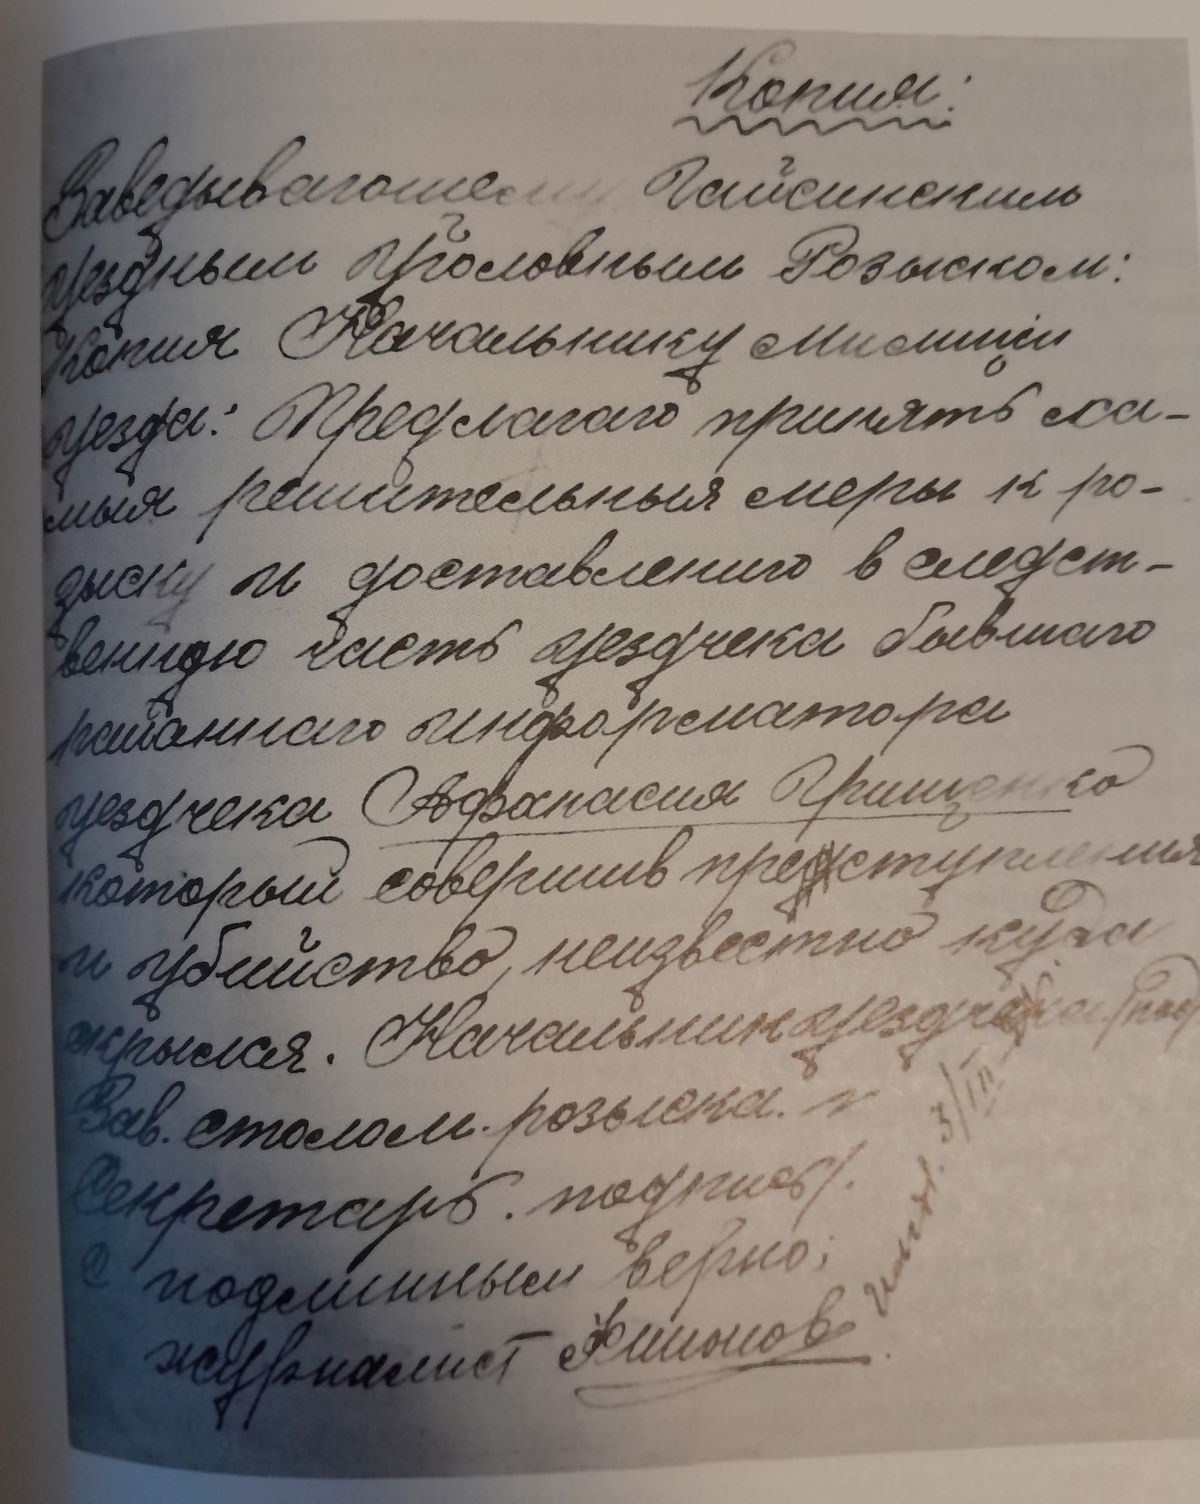 Копия:
Заведывающему Гайсинским
уездным Уголовным Розыском:
Копия Начальнику милиции
уезда: Предлагаю принять са-
мыя решительныя меры к ро-
зыску и доставлению в следст-
венную часть уездчека бывшаго
районнаго информатора
уездчека Афанасия Грищенко
который совершив преступления
и убийство, неизвестно куда
скрылся. Начальник уездчека (под
Зав. столом розыска. "
Секретарь. подпись/.
С подлинным верно:
журналист
3/III